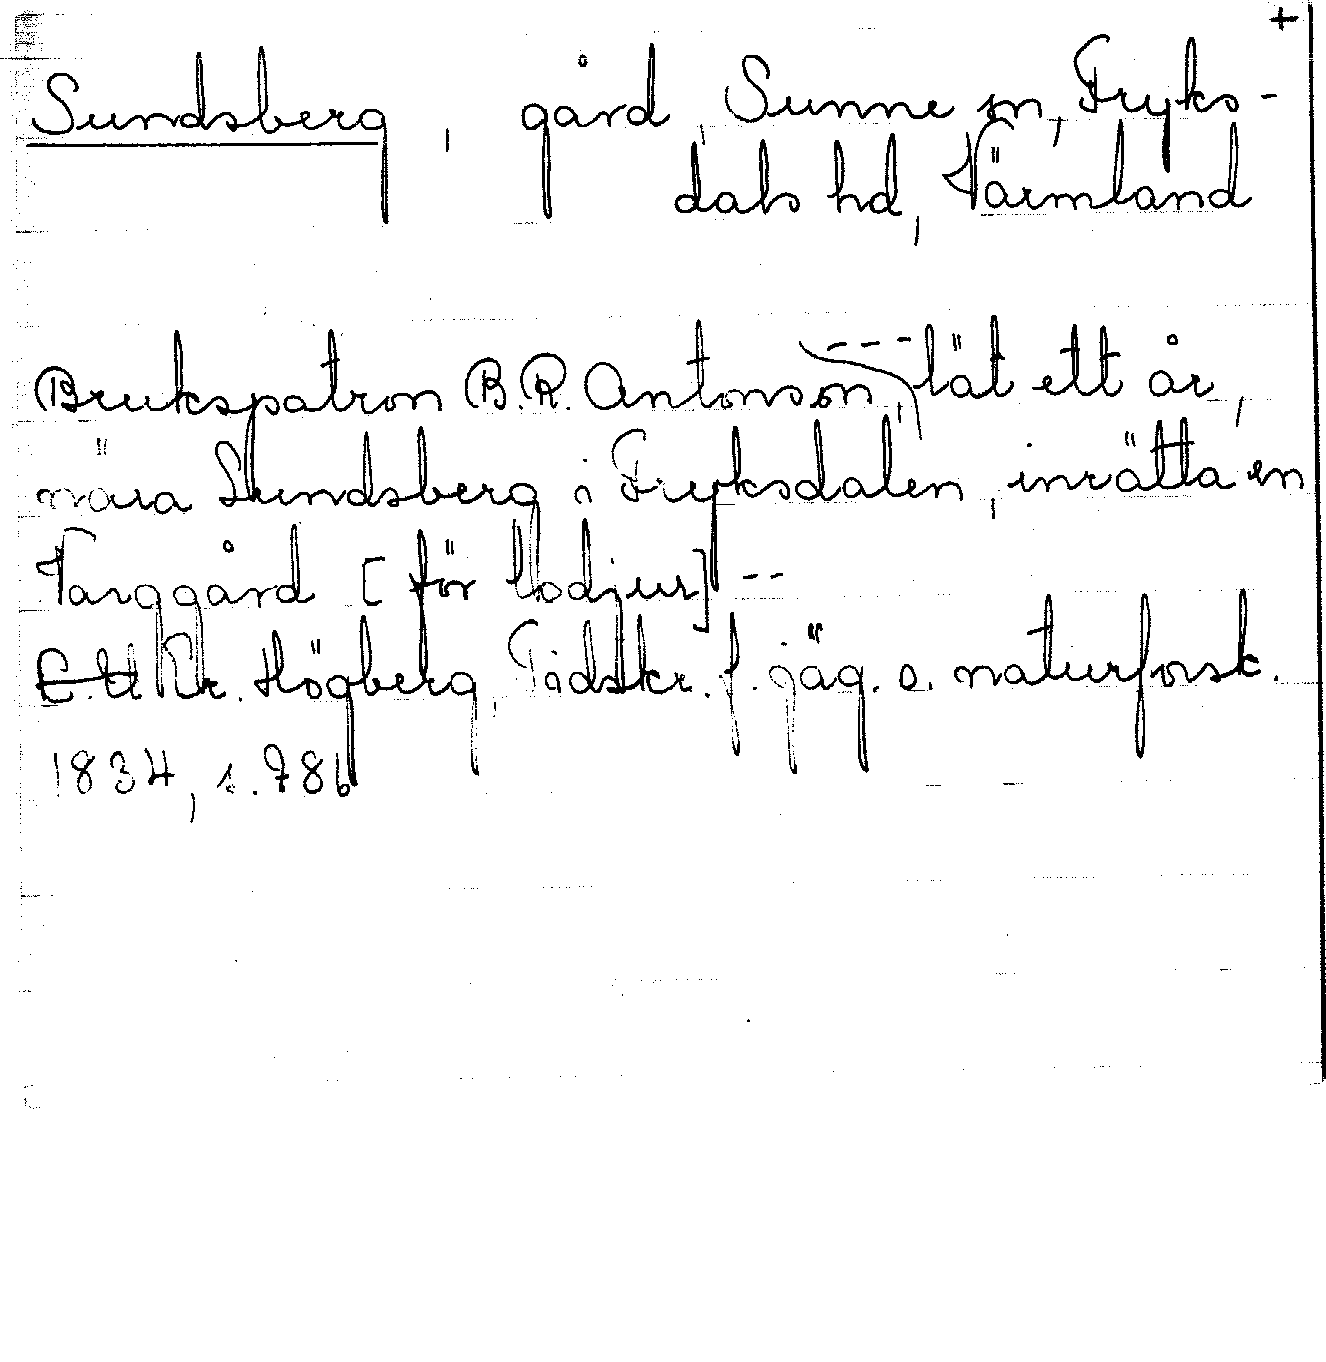 +
Sundsberg, gård, Sunne sn, Fryks-
dals hd, Värmland
Brukspatron B.R. Antonson, --- lät ett år,
nära Sundsberg i Fryksdalen, inrätta en
Varggård [för lodjur] --
Kr. Högberg, Tidskr. f. jäg. o. naturforsk.
1834, s. 786